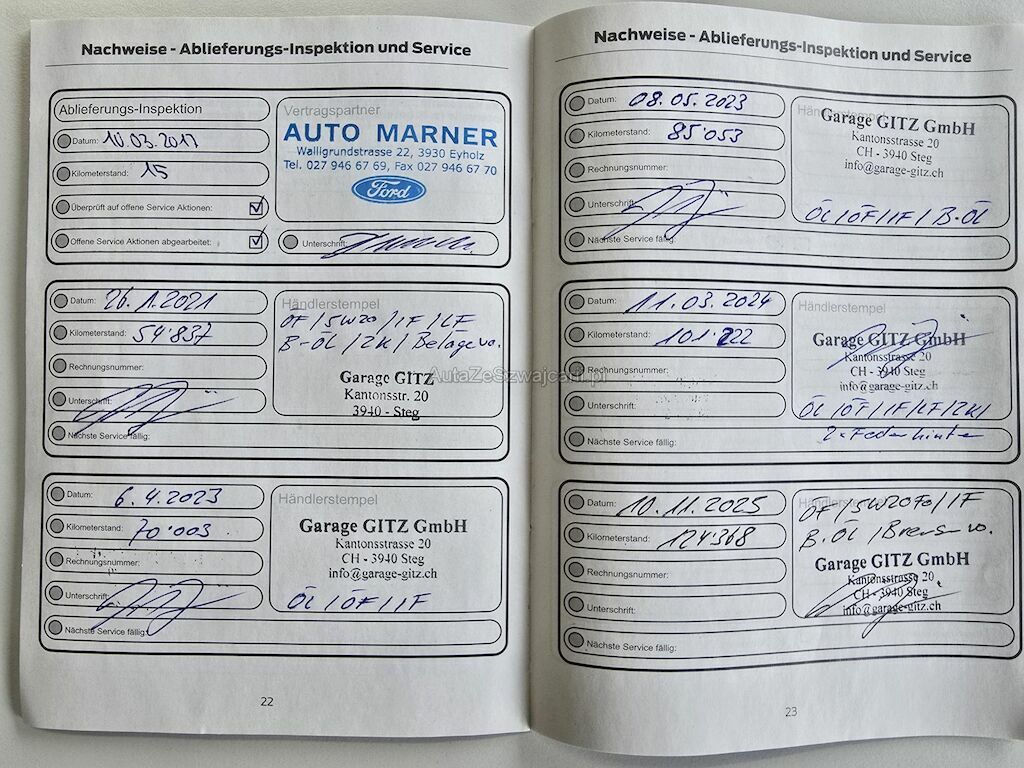 Nachweise - Ablieferungs-Inspektion und Service
Ablieferungs-Inspektion
Datum: 10.03.2017
Kilometerstand: 15
Überprüft auf offene Service Aktionen:
Offene Service Aktionen abgearbeitet:
Vertragspartner
AUTO MARNER
Walligrundstrasse 22, 3930 Eyholz
Tel. 027 946 67 69, Fax 027 946 67 70
Ford
Unterschrift:
Datum: 26.1.2021
Kilometerstand: 54'837
Rechnungsnummer:
Unterschrift:
Nächste Service fällig:
Händlerstempel
ÖF / 5W20 / IF / LF
B-ÖL / ZK / Beläge vo.
Garage GITZ
Kantonsstr. 20
3940 - Steg
AutaZeSzwajcarii.pl
Datum: 6.4.2023
Kilometerstand: 70'003
Rechnungsnummer:
Unterschrift:
Nächste Service fällig:
Händlerstempel
Garage GITZ GmbH
Kantonsstrasse 20
CH - 3940 Steg
info@garage-gitz.ch
ÖL / ÖF / IF
22
Nachweise - Ablieferungs-Inspektion und Service
Datum: 08.05.2023
Kilometerstand: 85'053
Rechnungsnummer:
Unterschrift:
Nächste Service fällig:
Garage GITZ GmbH
Kantonsstrasse 20
CH - 3940 Steg
info@garage-gitz.ch
ÖL / ÖF / IF / B-ÖL
Datum: 11.03.2024
Kilometerstand: 101'222
Rechnungsnummer:
Unterschrift:
Nächste Service fällig:
Händlerstempel
Garage GITZ GmbH
Kantonsstrasse 20
CH - 3940 Steg
info@garage-gitz.ch
ÖL / ÖF / IF / LF / ZK /
2x Feder hinten
Datum: 10.11.2025
Kilometerstand: 124'368
Rechnungsnummer:
Unterschrift:
Nächste Service fällig:
Händlerstempel
ÖF / 5W20 Fo / IF
B-ÖL / Brems vo.
Garage GITZ GmbH
Kantonsstrasse 20
CH - 3940 Steg
info@garage-gitz.ch
23